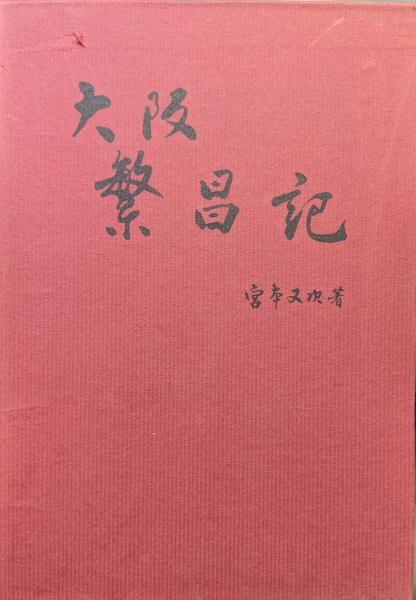 大阪
繁昌記
宮本又次著